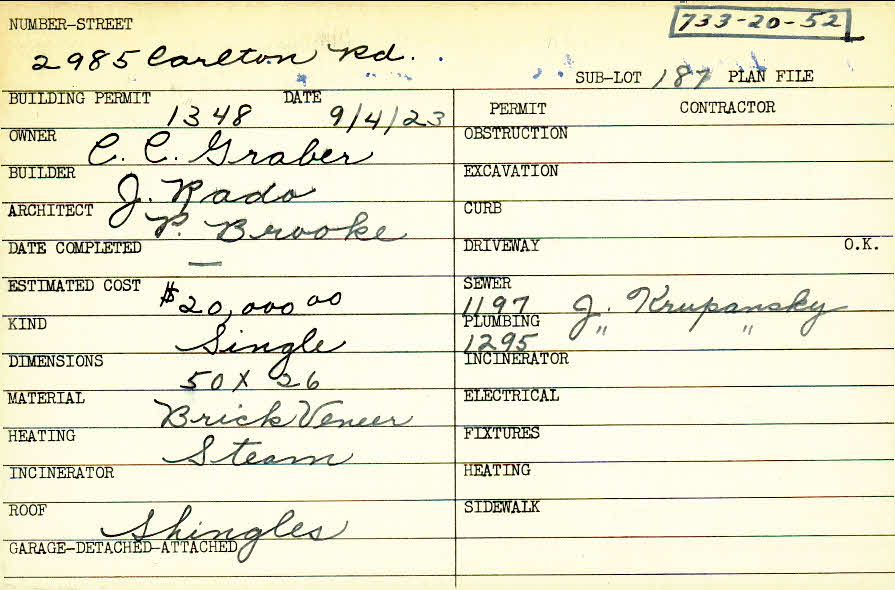 NUMBER-STREET
733-20-52
2985 Carlton Rd.
SUB-LOT 187 PLAN FILE
BUILDING PERMIT DATE
1348 9/4/23
OWNER C. C. Graber
BUILDER J. Rado
ARCHITECT P. Brooke
DATE COMPLETED —
ESTIMATED COST $20,000 00
KIND Single
DIMENSIONS 50 X 26
MATERIAL Brick Veneer
HEATING Steam
INCINERATOR
ROOF Shingles
GARAGE-DETACHED-ATTACHED
PERMIT CONTRACTOR
OBSTRUCTION
EXCAVATION
CURB
DRIVEWAY O.K.
SEWER
1197 J. Krupansky
PLUMBING " "
1295
INCINERATOR
ELECTRICAL
FIXTURES
HEATING
SIDEWALK